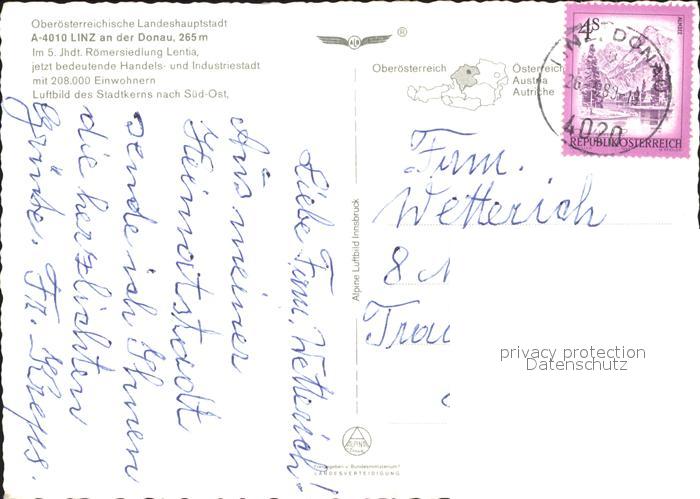 Oberösterreichische Landeshauptstadt
A-4010 LINZ an der Donau, 265 m
Im 5. Jhdt. Römersiedlung Lentia,
jetzt bedeutende Handels- und Industriestadt
mit 208.000 Einwohnern
Luftbild des Stadtkerns nach Süd-Ost,
®
Oberösterreich
Österreich
Austria
Autriche
4S
ALMSEE
REPUBLIK ÖSTERREICH
LINZ DONAU
4020
Liebe Fam. Wetterich!
Aus meiner
Heimatstadt
sende ich Ihnen
die herzlichten
Grüße. Fr.
Alpine Luftbild Innsbruck
Fam.
Wetterich
8
privacy protection
Datenschutz
ALPINE
LANDESVERTEIDIGUNG